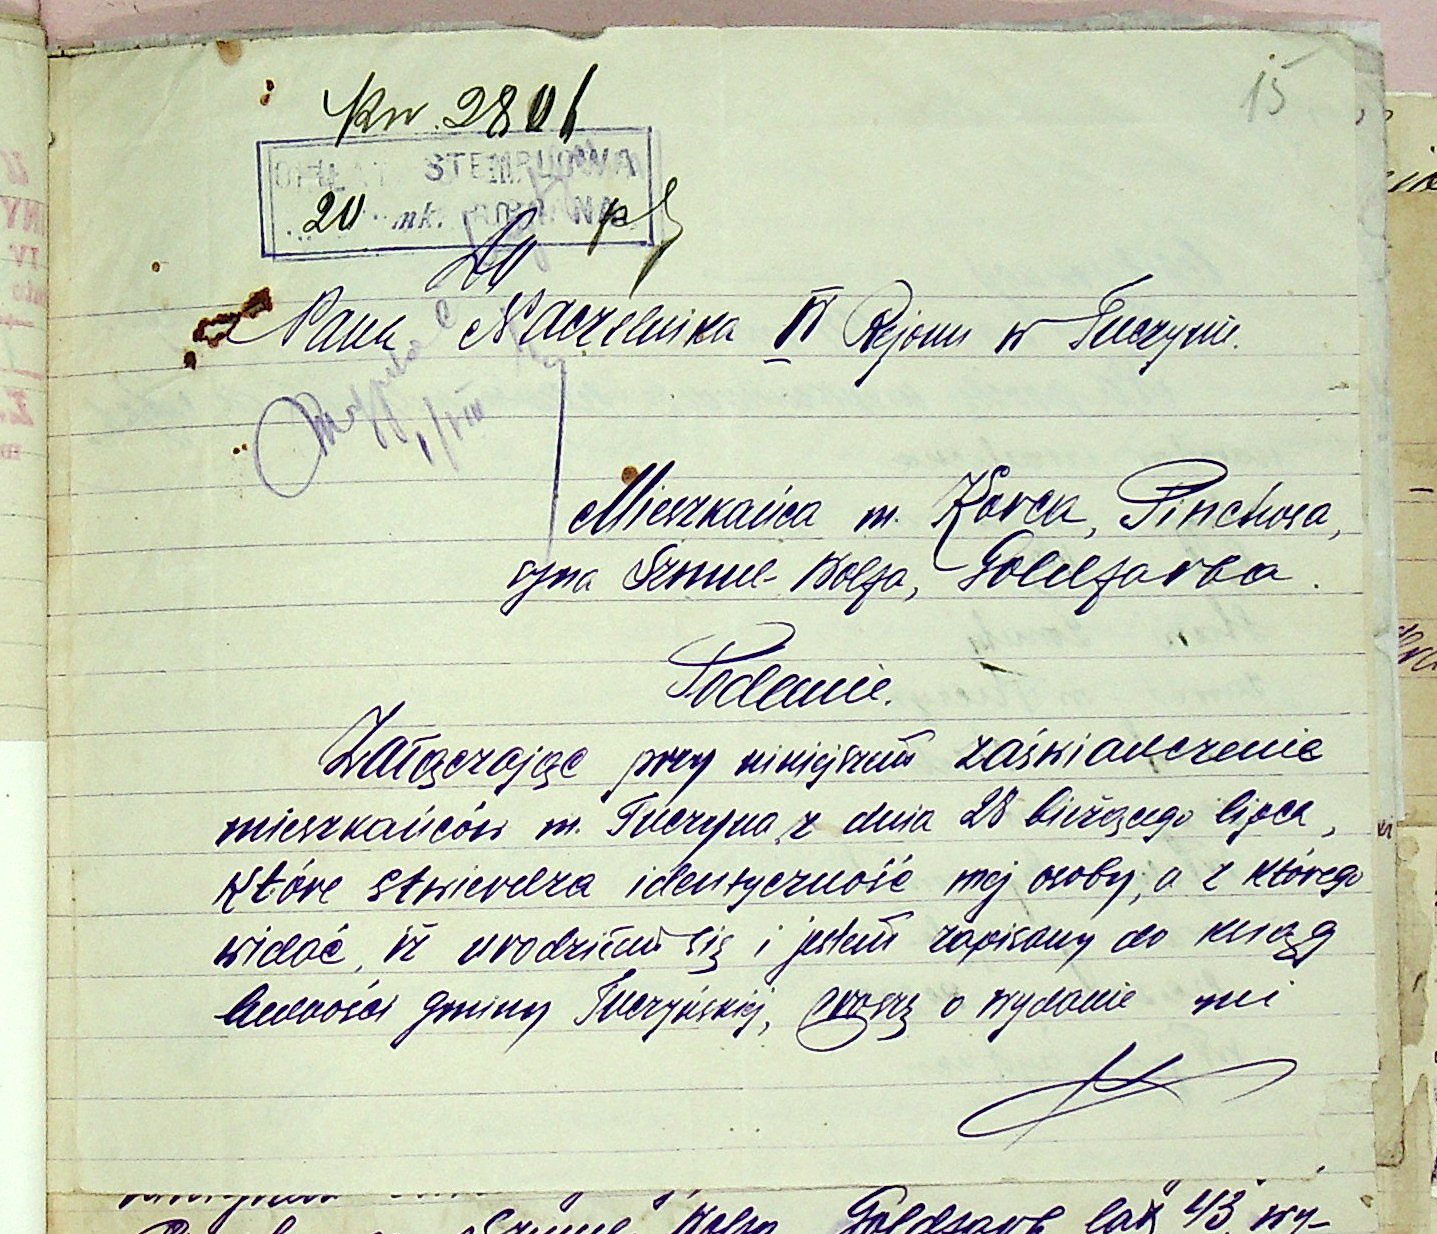 15
Kw. 2801
OPŁATA STEMPLOWA
20 mk.
Do
Pana Naczelnika IV Rejonu w Tuczynie.
Mieszkańca m. Korca, Pinchosa,
syna Szmul-Wolfa, Goldfarba.
Podanie.
Załączając przy niniejszem zaświadczenie
mieszkańców m. Tuczyna, z dnia 28 bieżącego lipca,
które stwierdza identyczność mej osoby, a z którego
widać, iż urodziłem się i jestem zapisany do ksiąg
ludności gminy Tuczyńskiej, proszę o wydanie mi
Goldfarb lat 43, wy-